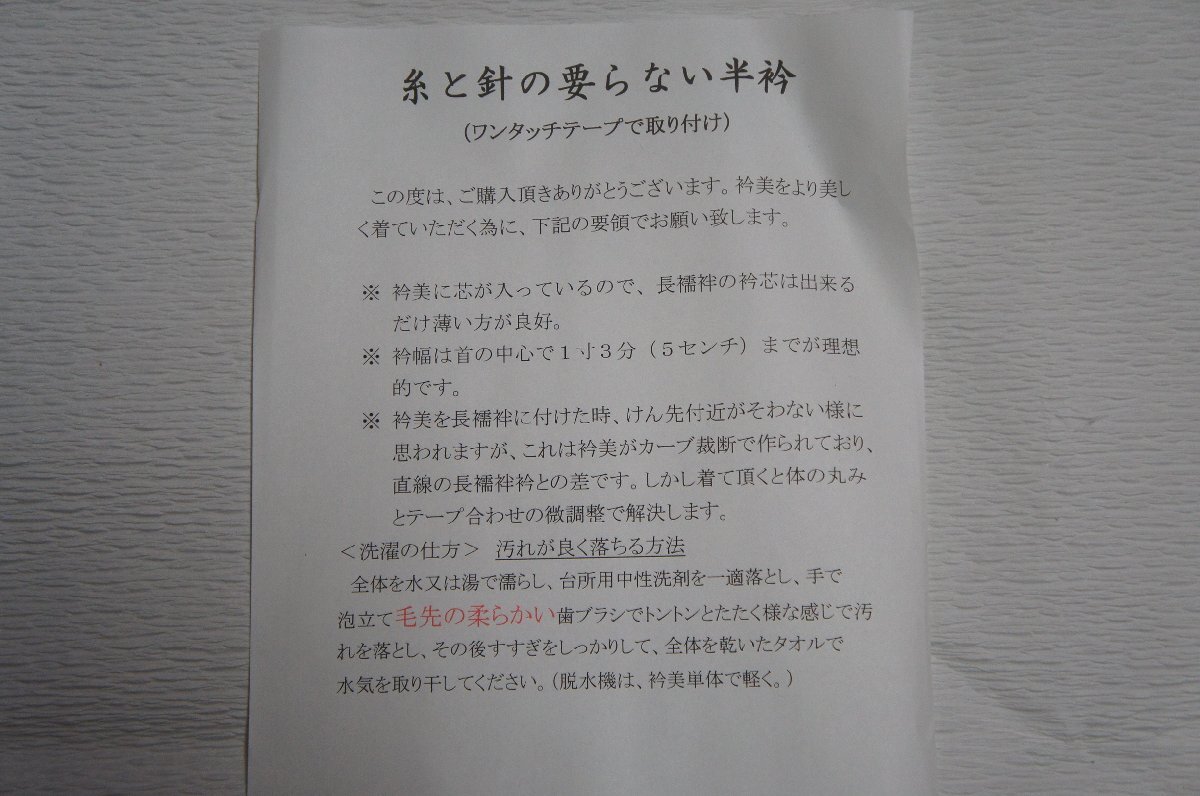 糸と針の要らない半衿
(ワンタッチテープで取り付け)
この度は、ご購入頂きありがとうございます。衿美をより美し
く着ていただく為に、下記の要領でお願い致します。
※ 衿美に芯が入っているので、長襦袢の衿芯は出来る
だけ薄い方が良好。
※ 衿幅は首の中心で1寸3分(5センチ)までが理想
的です。
※ 衿美を長襦袢に付けた時、けん先付近がそわない様に
思われますが、これは衿美がカーブ裁断で作られており、
直線の長襦袢衿との差です。しかし着て頂くと体の丸み
とテープ合わせの微調整で解決します。
<洗濯の仕方> 汚れが良く落ちる方法
全体を水又は湯で濡らし、台所用中性洗剤を一適落とし、手で
泡立て毛先の柔らかい歯ブラシでトントンとたたく様な感じで汚
れを落とし、その後すすぎをしっかりして、全体を乾いたタオルで
水気を取り干してください。(脱水機は、衿美単体で軽く。)